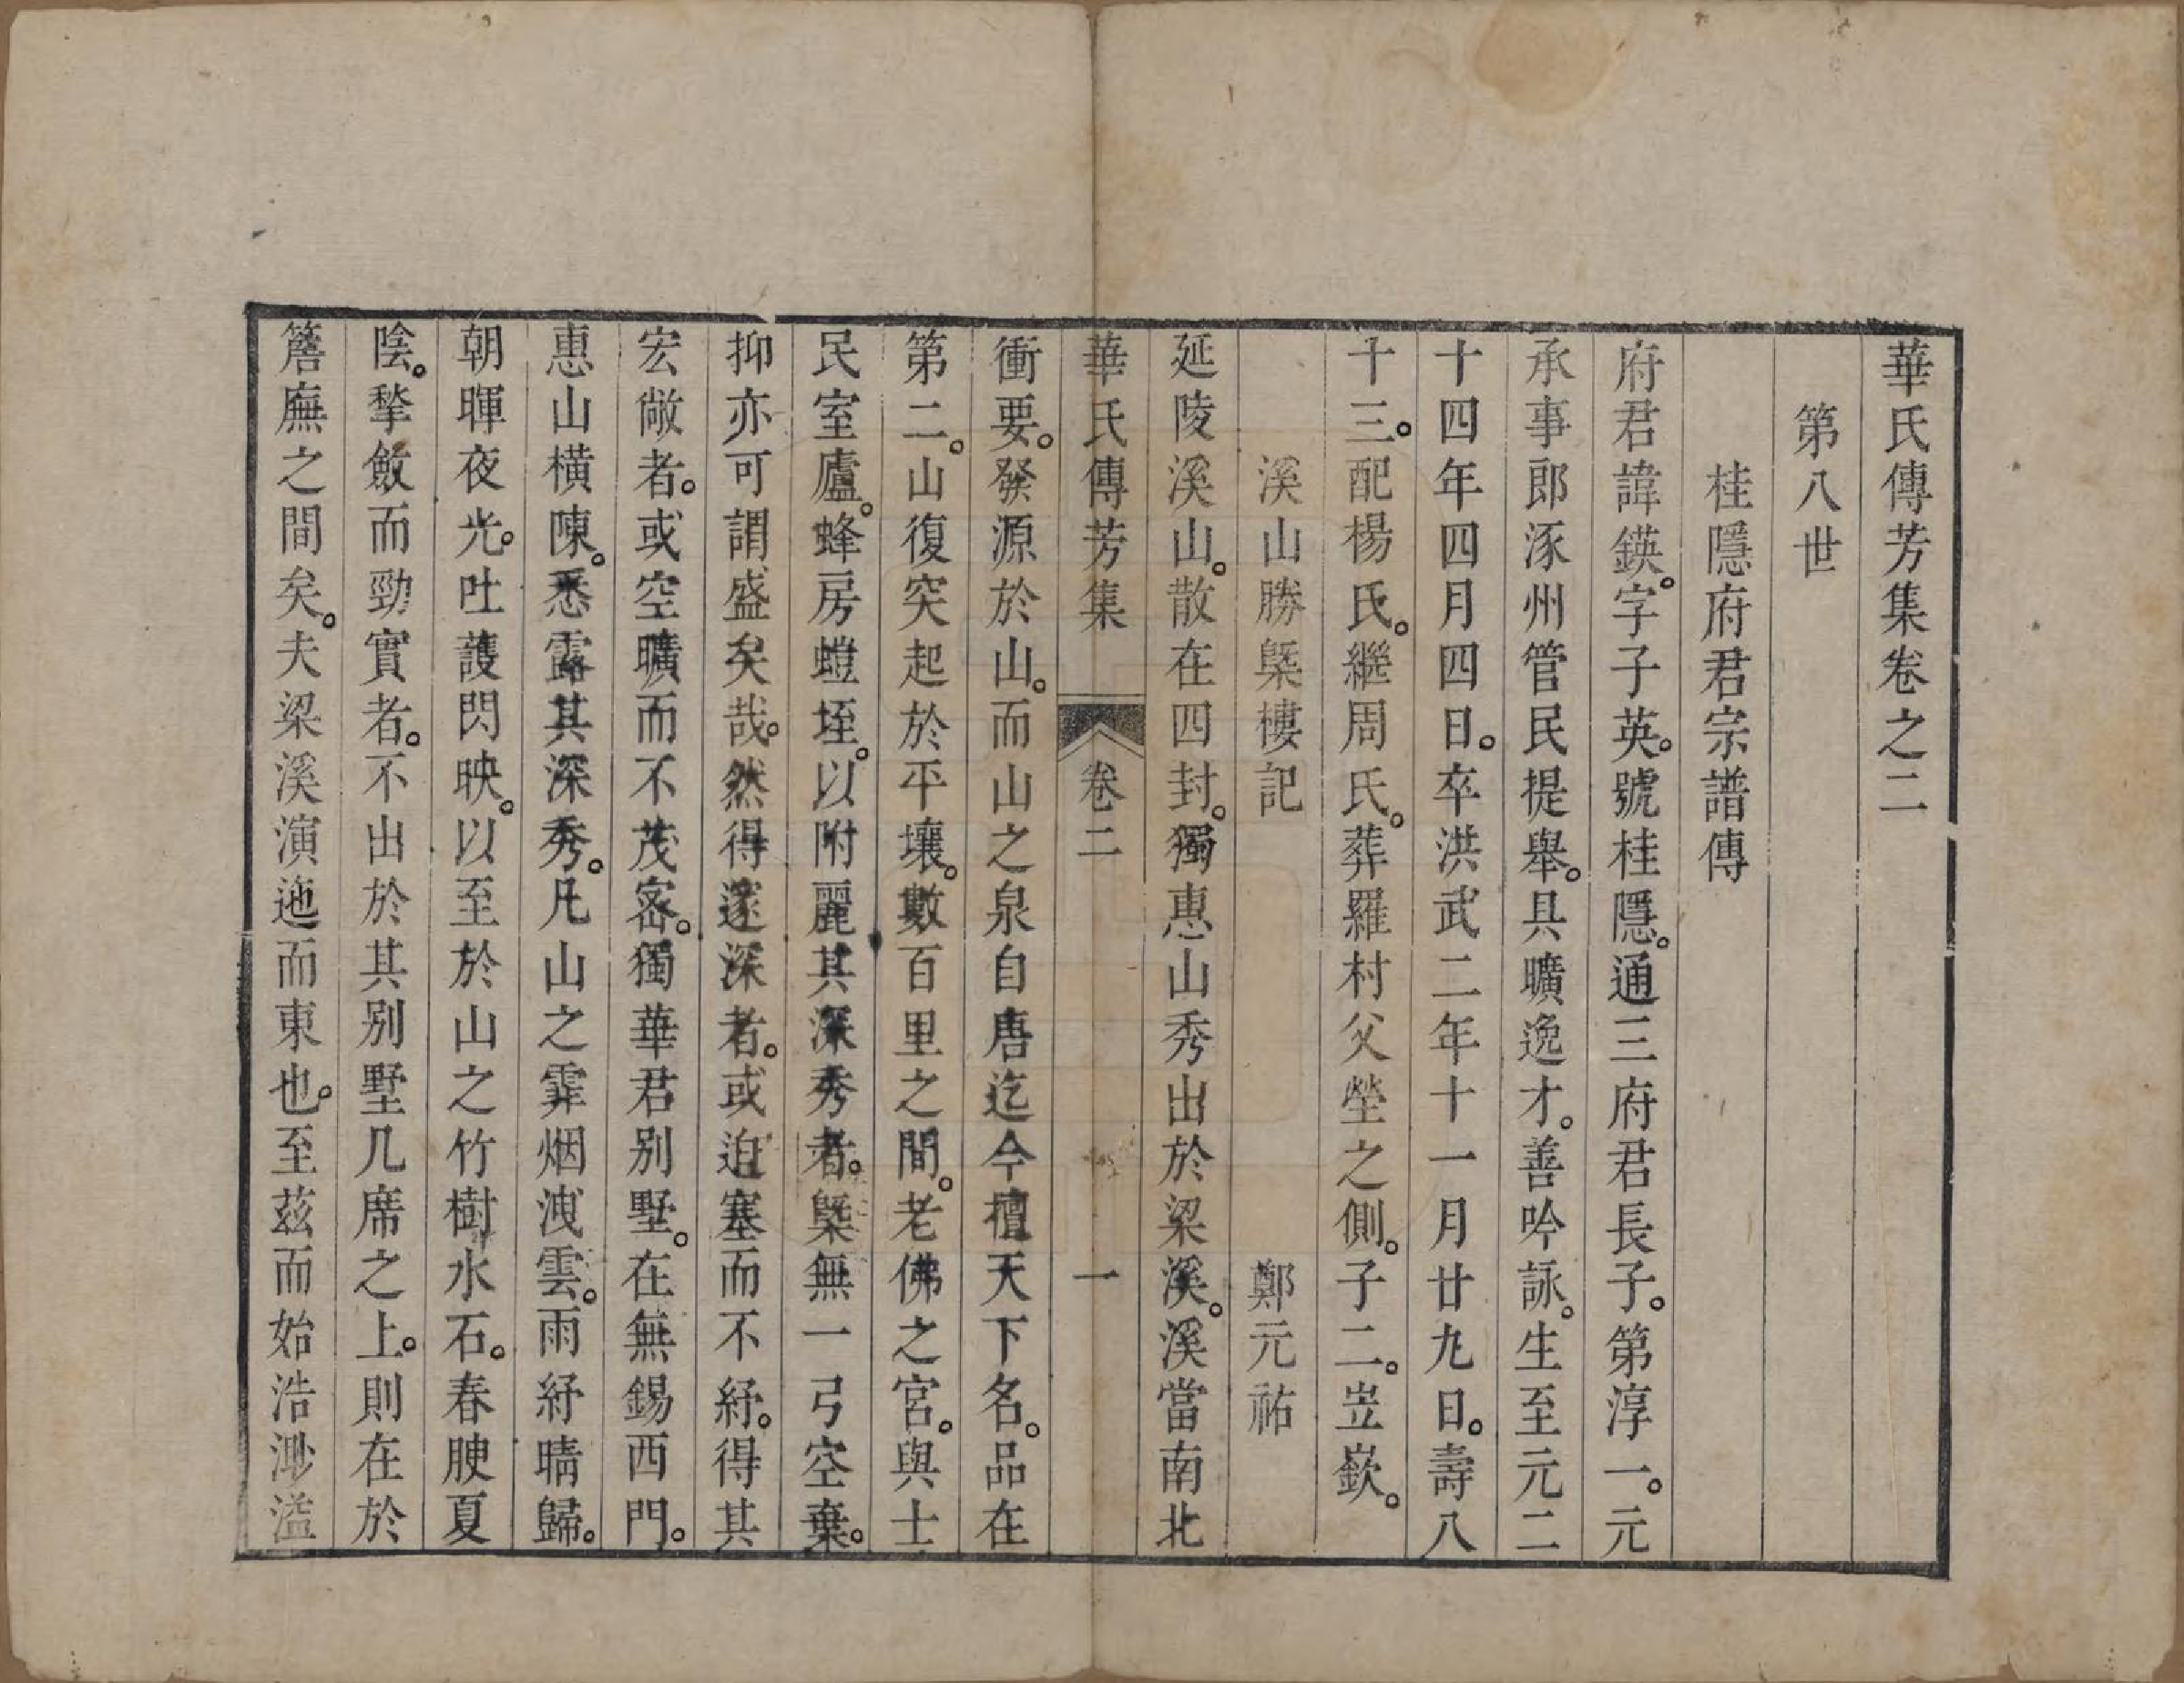 華氏傳芳集卷之二
第八世
桂隱府君宗譜傳
府君諱鍈。字子英。號桂隱。通三府君長子。第淳一。元
承事郎涿州管民提舉。具曠逸才。善吟詠。生至元二
十四年四月四日。卒洪武二年十一月廿九日。壽八
十三。配楊氏。繼周氏。葬羅村父塋之側。子二。岦嶔。
溪山勝槩樓記　鄭元祐
延陵溪山。散在四封。獨惠山秀出於梁溪。溪當南北
華氏傳芳集　卷二　一
衝要。發源於山。而山之泉自唐迄今擅天下名。品在
第二。山復突起於平壤。數百里之間。老佛之宮。與士
民室廬。蜂房螘垤。以附麗其深秀者。槩無一弓空棄。
抑亦可謂盛矣哉。然得邃深者。或迫塞而不紓。得其
宏敞者。或空曠而不茂密。獨華君别墅。在無錫西門。
惠山橫陳。悉露其深秀。凡山之霏烟洩雲。雨紓晴歸。
朝暉夜光。吐護閃映。以至於山之竹樹水石。春腴夏
陰。揫斂而勁實者。不出於其别墅几席之上。則在於
簷廡之間矣。夫梁溪演迤而東也。至茲而始浩渺溢